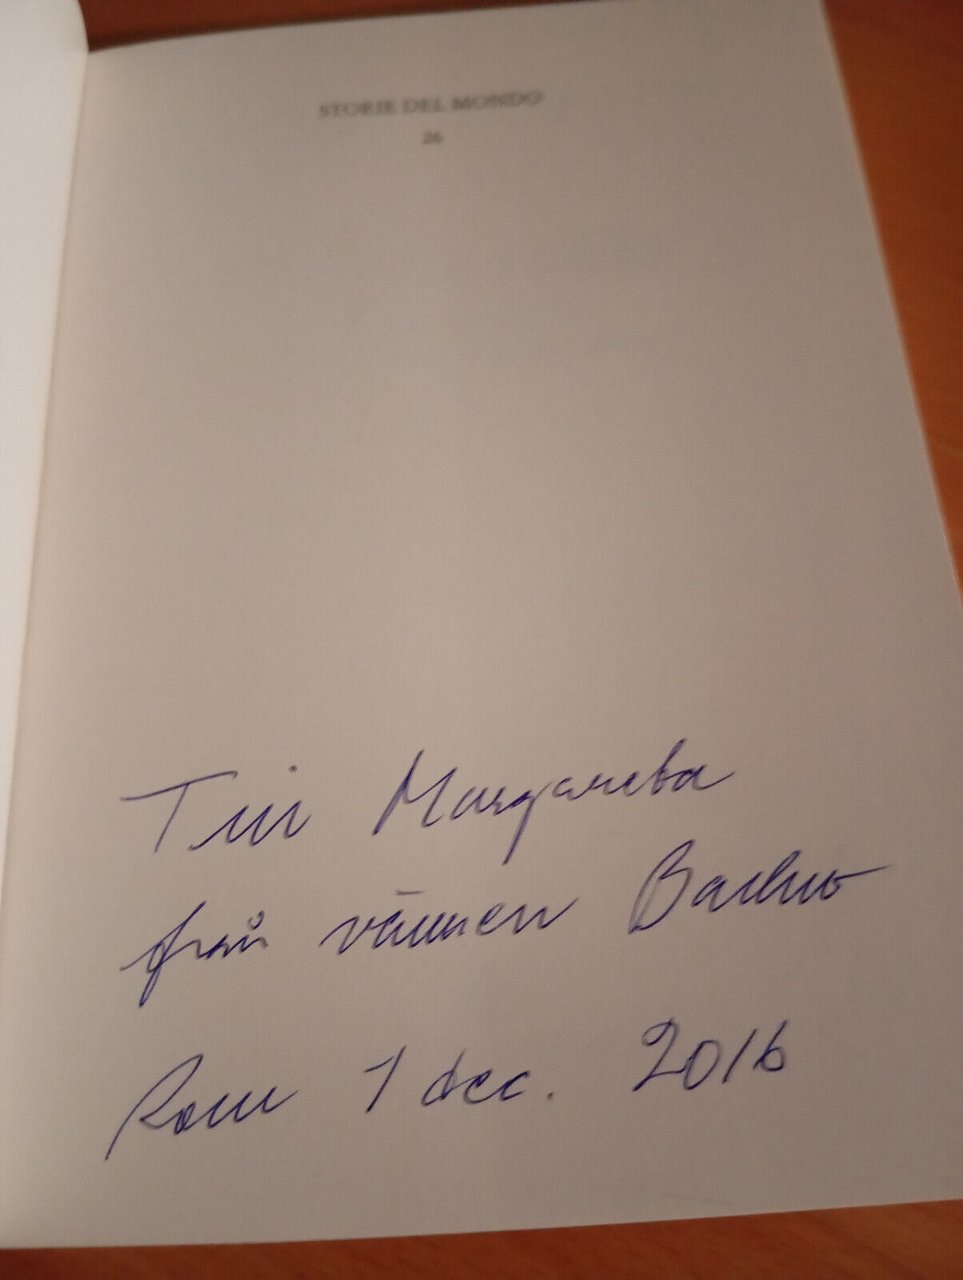 STORIE DEL MONDO
26
Till Margareta
från vännen
Rom 1 dec. 2016